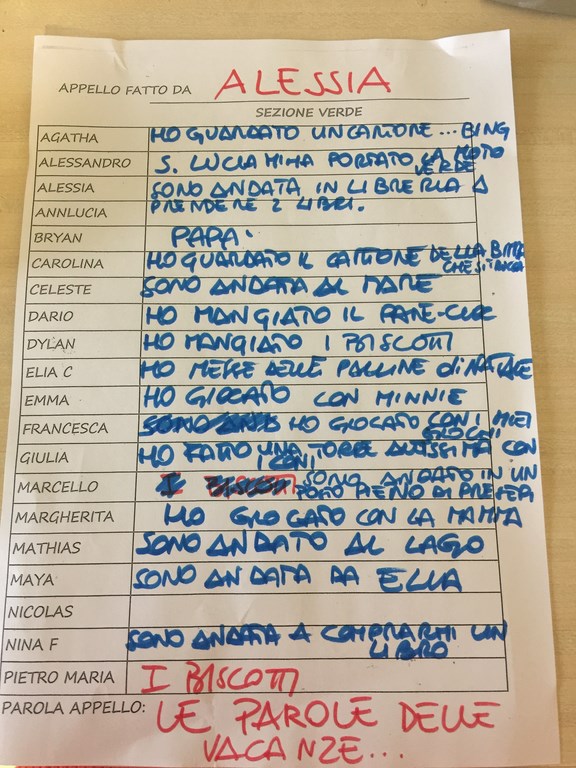 APPELLO FATTO DA ALESSIA
SEZIONE VERDE
AGATHA HO GUARDATO UN CARTONE... BING
ALESSANDRO S. LUCIA MI HA PORTATO LA MOTO VERDE
ALESSIA SONO ANDATA IN LIBRERIA A
ANNLUCIA PRENDERE 2 LIBRI.
BRYAN PAPA'
CAROLINA HO GUARDATO IL CARTONE DELLA
CELESTE SONO ANDATA AL MARE
DARIO HO MANGIATO IL PANE-CIOC
DYLAN HO MANGIATO I BISCOTTI
ELIA C HO MESSE DELLE PALLINE di NATALE
EMMA HO GIOCATO CON MINNIE
FRANCESCA HO GIOCATO CON I MIEI GIOCHI
GIULIA HO FATTO UNA TORRE ALTISSIMA CON I CONI
MARCELLO I BISCOTTI SONO ANDATO IN UN POSTO PIENO DI PRESEPI
MARGHERITA HO GIOCATO CON LA MAMMA
MATHIAS SONO ANDATO AL LAGO
MAYA SONO ANDATA DA ELIA
NICOLAS
NINA F SONO ANDATA A COMPRARMI UN LIBRO
PIETRO MARIA I BISCOTTI
PAROLA APPELLO: LE PAROLE DELLE
VACANZE...